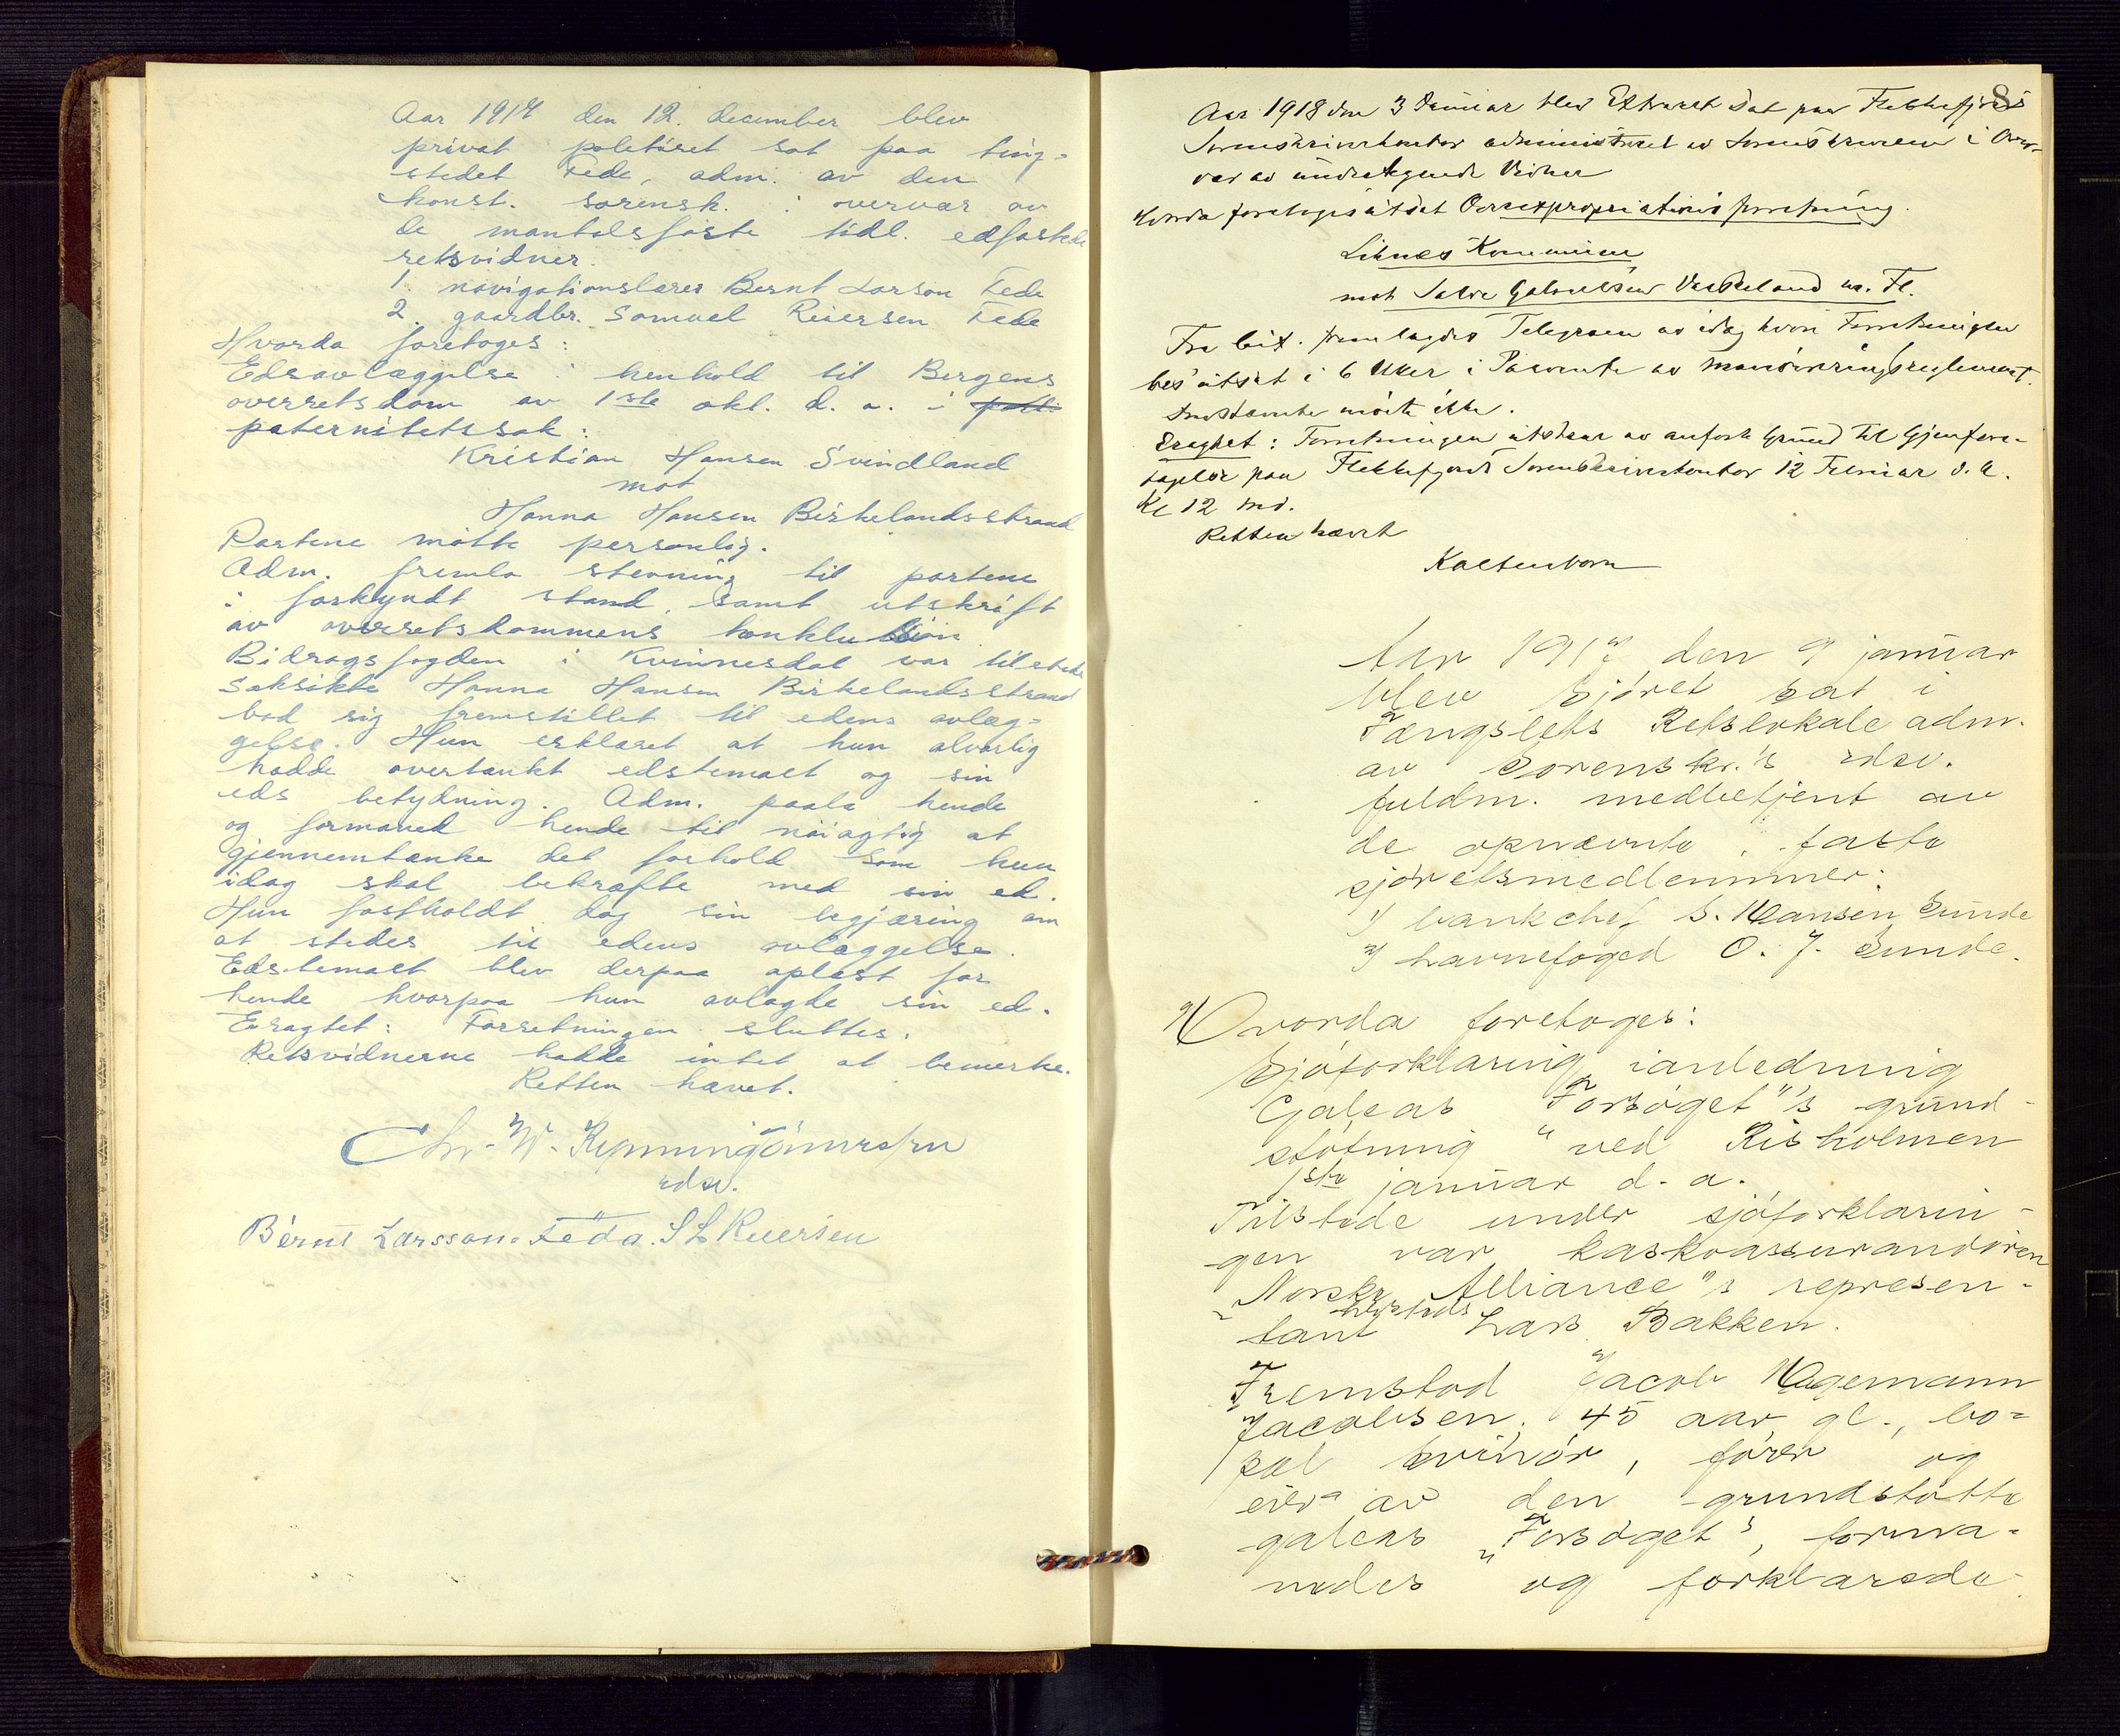 Aar 1917 den 12. december blev
privat politiret sat paa ting-
stedet Fede, adm. av den
konst. sorensk. i overvær av
de mantalsførte tidl. edfæstede
retsvidner.
1. navigationslærer Bernt Larson Fede
2. gaardbr. Samuel Reiersen Fede
Hvorda foretoges:
Edsavlæggelse i henhold til Bergens
overretsdom av 1ste okt. d. a. i
paternitetssak:
Kristian Hansen Svindland
mot
Hanna Hansen Birkelandsstrand
Partene møtte personlig.
Adm. fremla stevning til partene
i forkyndt stand, samt utskrift
av overretsdommens konklusion
Bidragsfogden i Kvinnesdal var tilstede
Saksøkte Hanna Hansen Birkelandsstrand
bad sig fremstillet til edens avlæg-
gelse. Hun erklæret at hun alvorlig
hadde overtænkt edstemaet og sin
eds betydning. Adm. paala hende
og formaned hende til nøiagtig at
gjennemtænke det forhold som hun
idag skal bekræfte med sin ed.
Hun fastholdt dog sin begjæring om
at stedes til edens avlæggelse.
Edstemaet blev derpaa oplæst for
hende hvorpaa hun avlagde sin ed.
Eragtet: Forretningen sluttes.
Retsvidnerne hadde intet at bemerke.
Retten hævet.
Chr. W.
edsv.
Bernt Larsson Feda. S L Reiersen
8
Aar 1918 den 3 Januar blev Extraret sat paa Flekkefjords
Sorenskriverkontor administreret av Sorenskriveren i Over-
vær av undertegnede Vidner
Hvorda foretoges utsat Overexpropriationsforretning
Liknes Kommune
mot Salve Gabrielsen
Fra Cit. fremlagdes Telegram av idag hvori Forretningen
bes utsat i 6 Uker i Paavente av manøvreringsreglement.
Indstævnte møtte ikke.
Eragtet: Forretningen utstaar av anførte Grund til Gjenfore-
tagelse paa Flekkefjords Sorenskriverkontor 12 Februar d. A.
Kl 12 Md.
Retten hævet
Kaltenborn
Aar 1917 den 9 januar
blev Sjøret sat i
Fængslets Retslokale adm.
av Sorenskr.'s edsv.
fuldm. medbetjent av
de opnævnte, faste
sjøretsmedlemmer:
1) bankchef S. Hansen Sunde
2) havnefoged O. J. Sunde.
Hvorda foretoges:
Sjøforklaring ianledning
Galeas "Forsøget"'s grund-
støtning ved Risholmen
1ste januar d. a.
Tilstede under sjøforklarin-
gen var kaskoassurandøren
"Norske Alliance"'s represen-
tant Lars Bakken.
Fremstod Jacob Hagemann
Jacobsen, 45 aar gl., bo-
pæl Svinør, fører og
eier av den grundstøtte
galeas "Forsøget", forma-
nedes og forklarede